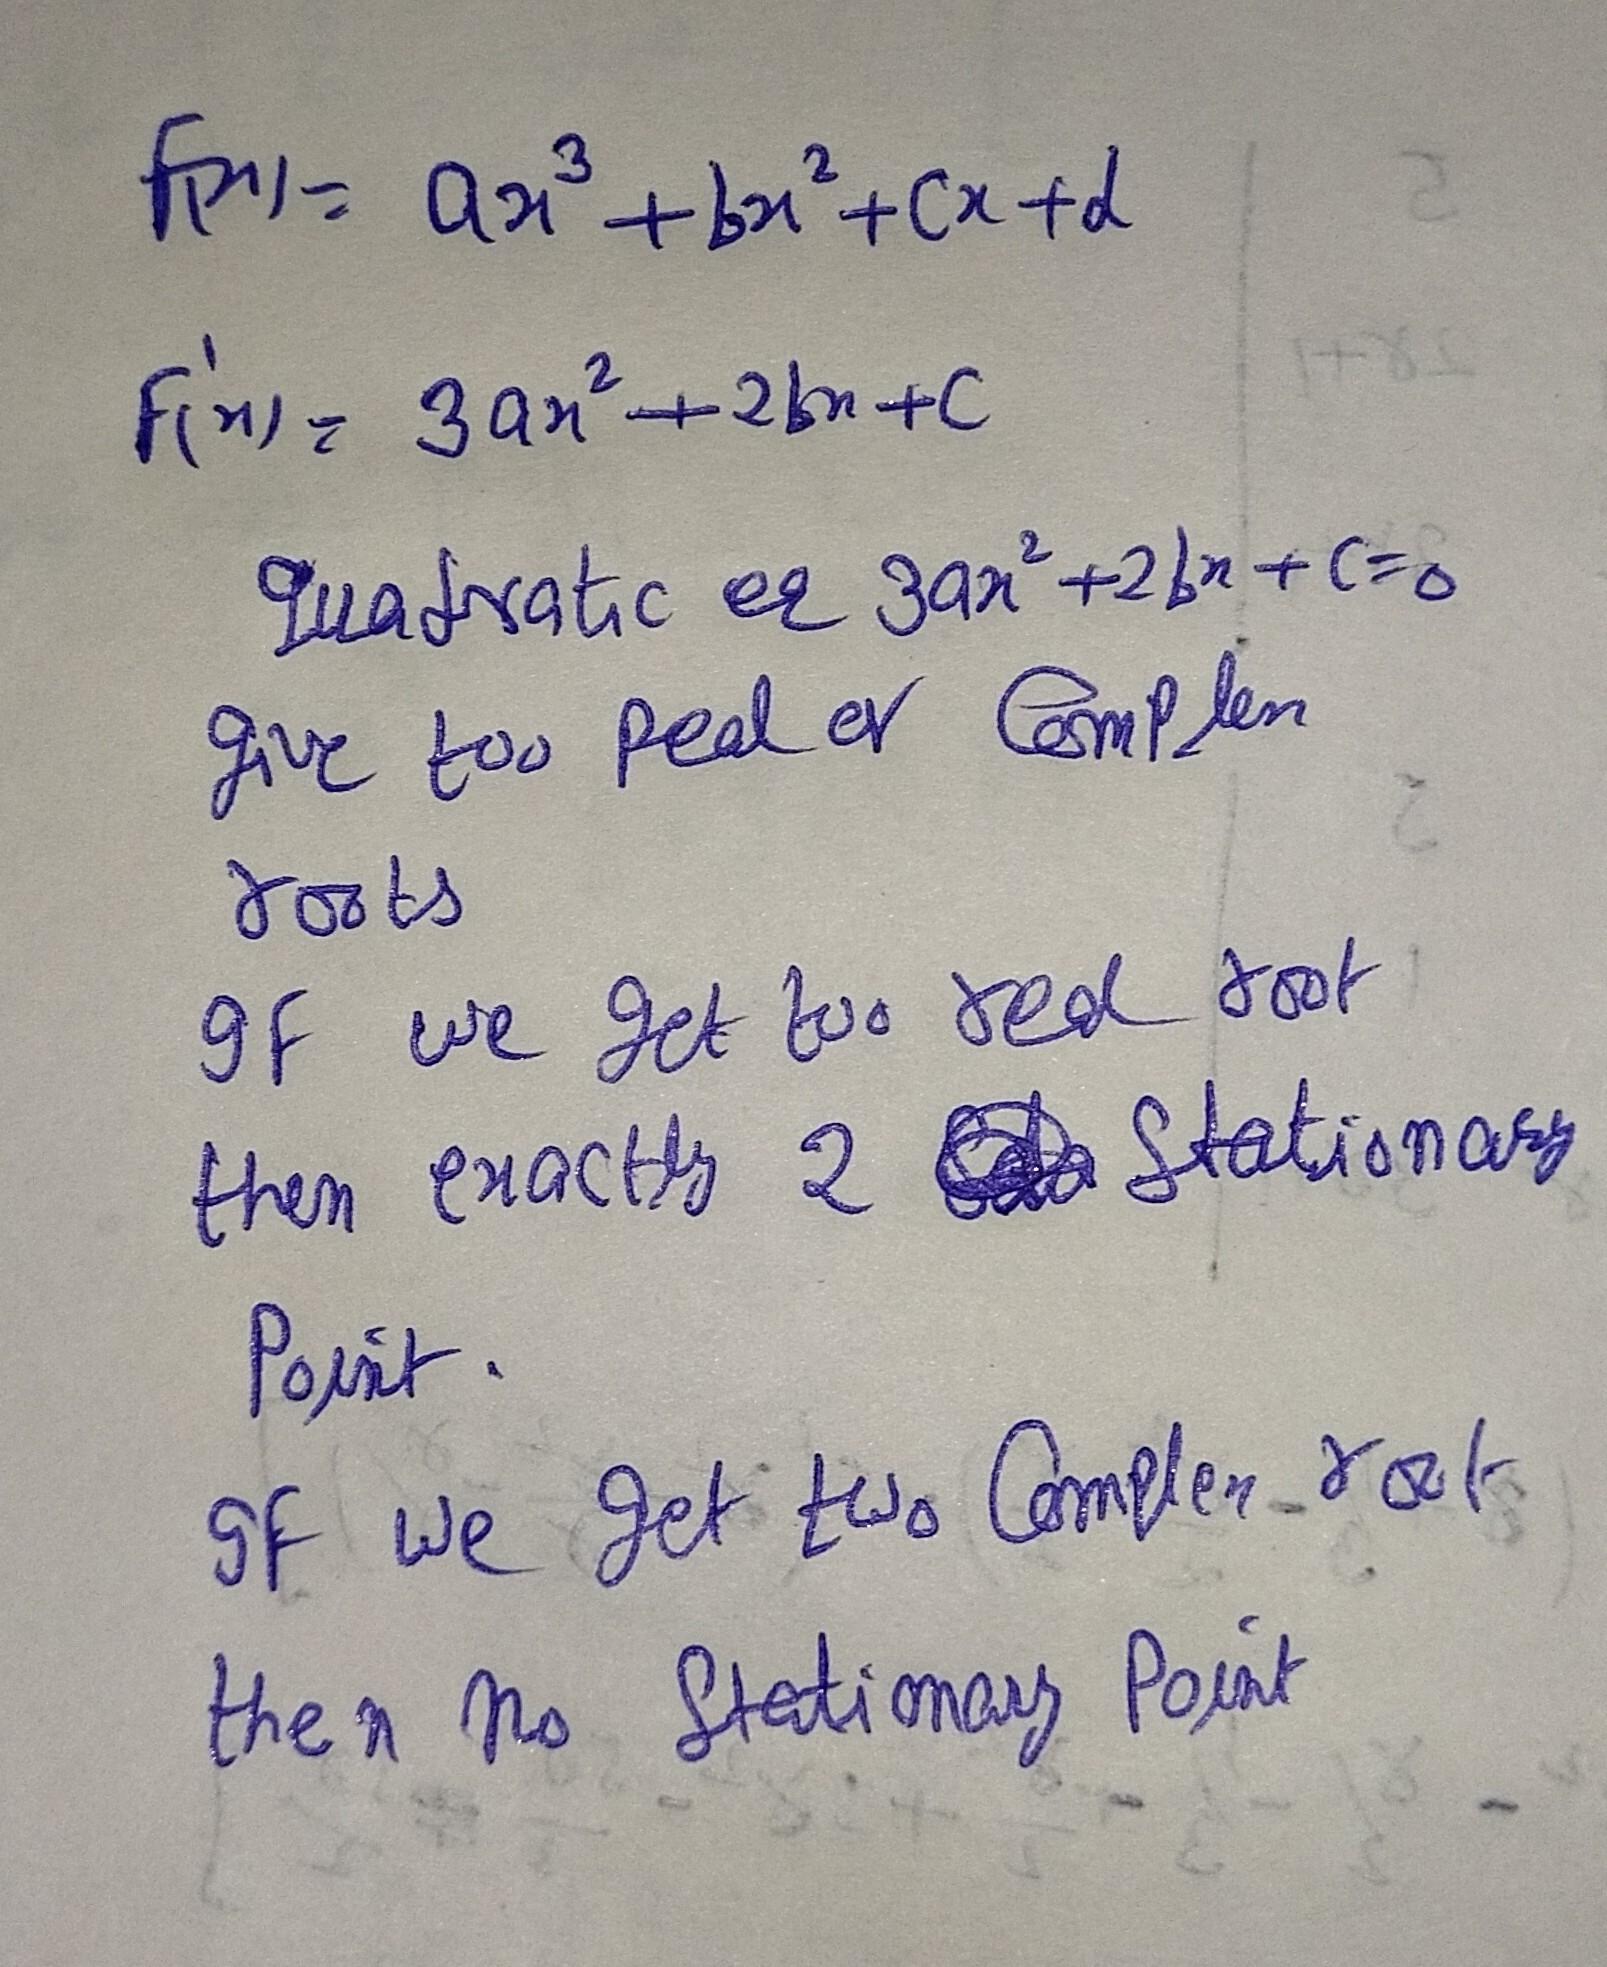 f(x) = ax³ + bx² + cx + d
f'(x) = 3ax² + 2bx + c
quadratic eq 3ax² + 2bx + c = 0
give two real or complex
roots
If we get two real root
then exactly 2 stationary
Point.
If we get two complex root
then no stationary point